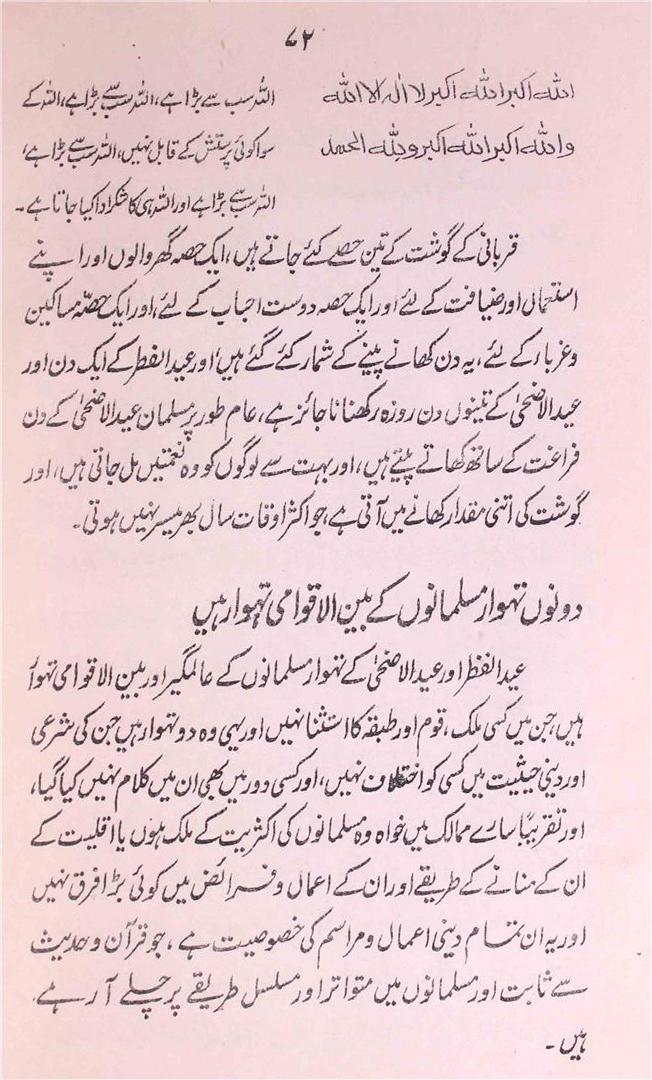 ۷۲
اللہ اکبر اللہ اکبر لا الہ الا اللہ
واللہ اکبر اللہ اکبر وللہ الحمد
اللہ سب سے بڑا ہے، اللہ سب سے بڑا ہے، اللہ کے
سوا کوئی پرستش کے قابل نہیں، اللہ سب سے بڑا ہے،
اللہ سب سے بڑا ہے اور اللہ ہی کا شکر ادا کیا جاتا ہے۔
قربانی کے گوشت کے تین حصے کئے جاتے ہیں، ایک حصہ گھر والوں اور اپنے
استعمال اور ضیافت کے لئے اور ایک حصہ دوست احباب کے لئے، اور ایک حصّہ مساکین
و غرباء کے لئے، یہ دن کھانے پینے کے شمار کئے گئے ہیں، اور عید الفطر کے ایک دن اور
عید الاضحیٰ کے تینوں دن روزہ رکھنا ناجائز ہے، عام طور پر مسلمان عید الاضحیٰ کے دن
فراغت کے ساتھ کھاتے پیتے ہیں، اور بہت سے لوگوں کو وہ نعمتیں مل جاتی ہیں، اور
گوشت کی اتنی مقدار کھانے میں آتی ہے، جو اکثر اوقات سال بھر میسر نہیں ہوتی۔
دونوں تہوار مسلمانوں کے بین الاقوامی تہوار ہیں
عید الفطر اور عید الاضحیٰ کے تہوار مسلمانوں کے عالمگیر اور بین الاقوامی تہوار
ہیں، جن میں کسی ملک، قوم اور طبقہ کا استثنا نہیں اور یہی وہ دو تہوار ہیں جن کی شرعی
اور دینی حیثیت میں کسی کو اختلاف نہیں، اور کسی دور میں بھی ان میں کلام نہیں کیا گیا،
اور تقریباً سارے ممالک میں خواہ وہ مسلمانوں کی اکثریت کے ملک ہوں یا اقلیت کے
ان کے منانے کے طریقے اور ان کے اعمال و فرائض میں کوئی بڑا فرق نہیں
اور یہ ان تمام دینی اعمال و مراسم کی خصوصیت ہے، جو قرآن و حدیث
سے ثابت اور مسلمانوں میں متواتر اور مسلسل طریقے پر چلے آ رہے
ہیں۔